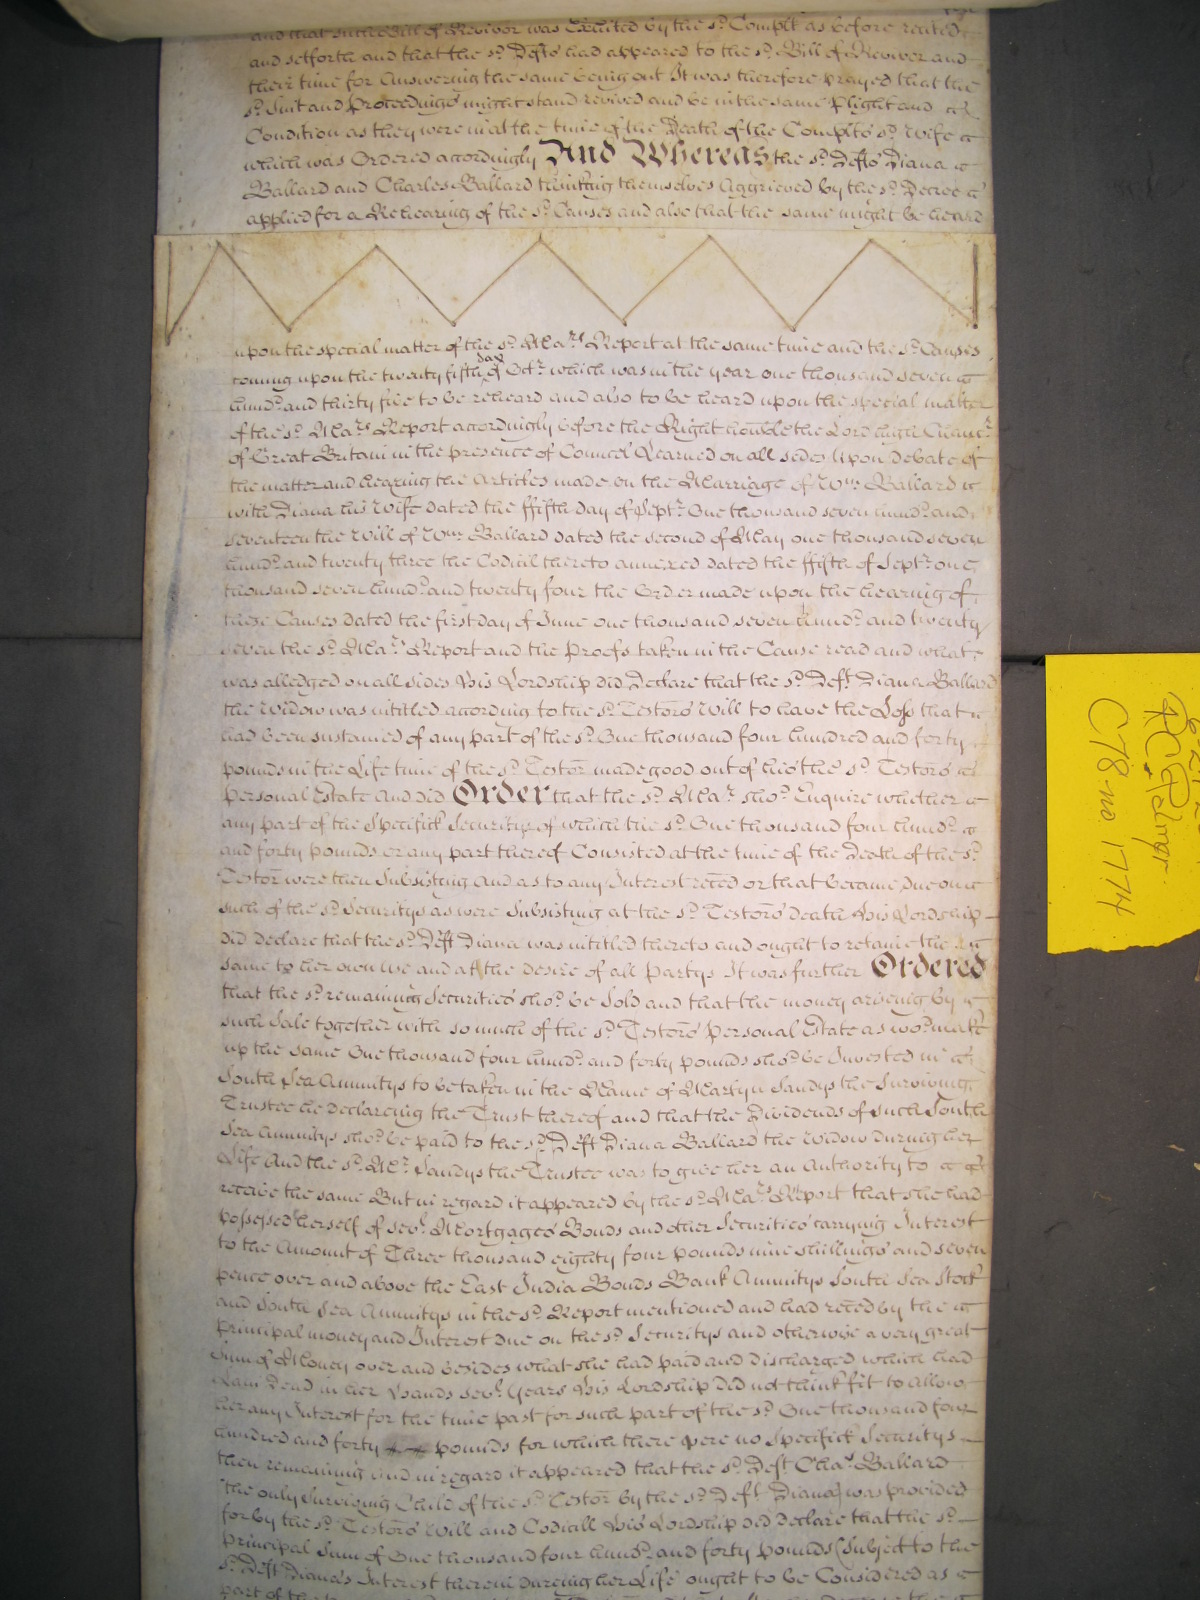 and that such Bill of Revivor was Exhited by the sd. Complt as before recited
and setforth and that the sd. Defts had appeared to the sd. Bill of Revivor and
their time for Answering the same being out It was therefore prayed that the
sd. Suit and Proceedings might stand revived and be in the same Plight and
Condition as they were in at the time of the Death of the Complts sd. Wife
which was Ordered accordingly And Whereas the sd. Defts Diana
Ballard and Charles Ballard thinking themselves Aggrieved by the sd. Decree
applied for a Rehearing of the sd. Causes and also that the same might be heard
upon the special matter of the sd. Mars Report at the same time and the sd. Causes
coming upon the twenty fifth day of Octr. which was in the year one thousand seven
hundd. and thirty five to be reheard and also to be heard upon the special matter
of the sd. Mars Report accordingly before the Right honble the Lord high Chancr.
of Great Britain in the presence of Councel Learned on all sides Upon debate of
the matter and hearing the Articles made on the Marriage of Wm. Ballard
with Diana his Wife dated the ffifth day of Septr. One thousand seven hundd. and
seventeen the Will of Wm. Ballard dated the second of May one thousand seven
hundd. and twenty three the Codicil thereto annexed dated the ffifth of Septr. one
thousand seven hundd. and twenty four the Order made upon the hearing of
these Causes dated the first day of June one thousand seven hundd. and twenty
seven the sd. Mars Report and the Proofs taken in the Cause read and what
was alledged on all sides His Lordship did Declare that the sd. Deft. Diana Ballard
the Widow was intitled according to the sd. Testors Will to have the Loss that
had been sustained of any part of the sd. One thousand four hundred and forty
pounds in the Life time of the sd. Testor made good out of his the sd. Testors
Personal Estate And did Order that the sd. Mar. shod. Enquire whether
any part of the Specifick Securitys of which the sd. One thousand four hundd.
and forty pounds or any part thereof Consisted at the time of the Death of the sd.
Testor were then Subsisting And as to any Interest reced or that became Due on
such of the sd. Securitys as were Subsisting at the sd. Testors death His Lordship
did declare that the sd. Deft Diana was intitled thereto and ought to retaine the
same to her own Use and at the desire of all Partys It was further Ordered
that the sd. remaining Securities shod. be Sold and that the money ariseing by
such Sale together with so much of the sd. Testors Personal Estate as wod. make
up the same One thousand four hundd. and forty pounds shod. be Invested in
South Sea Annuitys to be taken in the Name of Martyn Sandys the Surviving
Trustee he declareing the Trust thereof and that the Dividends of such South
Sea Annuitys shod. be paid to the sd. Deft Diana Ballard the Widow during her
Life And the sd. Mr. Sandys the Trustee was to give her an Authority to
receive the same But in regard it appeared by the sd. Mars Report that she had
possessed herself of sevl. Mortgages Bonds and other Securities carrying Interest
to the Amount of Three thousand eighty four pounds nine shillings and seven
pence over and above the East India Bonds Bank Annuitys South Sea Stock
and South Sea Annuitys in the sd. Report mentioned and had reced by the
Principal money and Interest due on the sd. Securitys and otherwise a very great
Sum of Money over and besides what she had paid and discharged which had
Lain Dead in her Hands sevl. Years His Lordship did not think fit to allow
her any Interest for the time past for such part of the sd. One thousand four
hundred and forty pounds for which there were no Specifick Securitys
then remaining And in regard it appeared that the sd. Deft Chas. Ballard
the only Surviving Child of the sd. Testor by the sd. Deft. Diana was provided
for by the sd. Testors Will and Codicill His Lordship did declare that the sd.
Principal Sum of One thousand four hundd. and forty pounds (Subject to the
sd. Deft Diana's Interest therein dureing her Life) ought to be Considered as
part of the
C78 no 1774